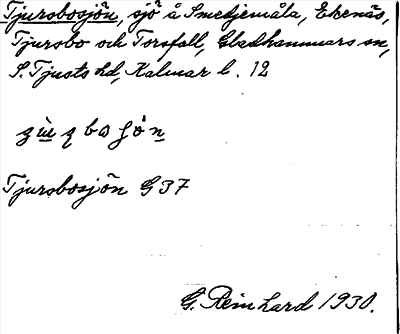 Tjursbosjön, sjö å Smedjemåla, Ekenäs,
Tjursbo och Torsfall, Gladhammars sn,
S. Tjusts hd, Kalmar l. 12
Tjursbosjön G 37
G. Reinhard 1930.